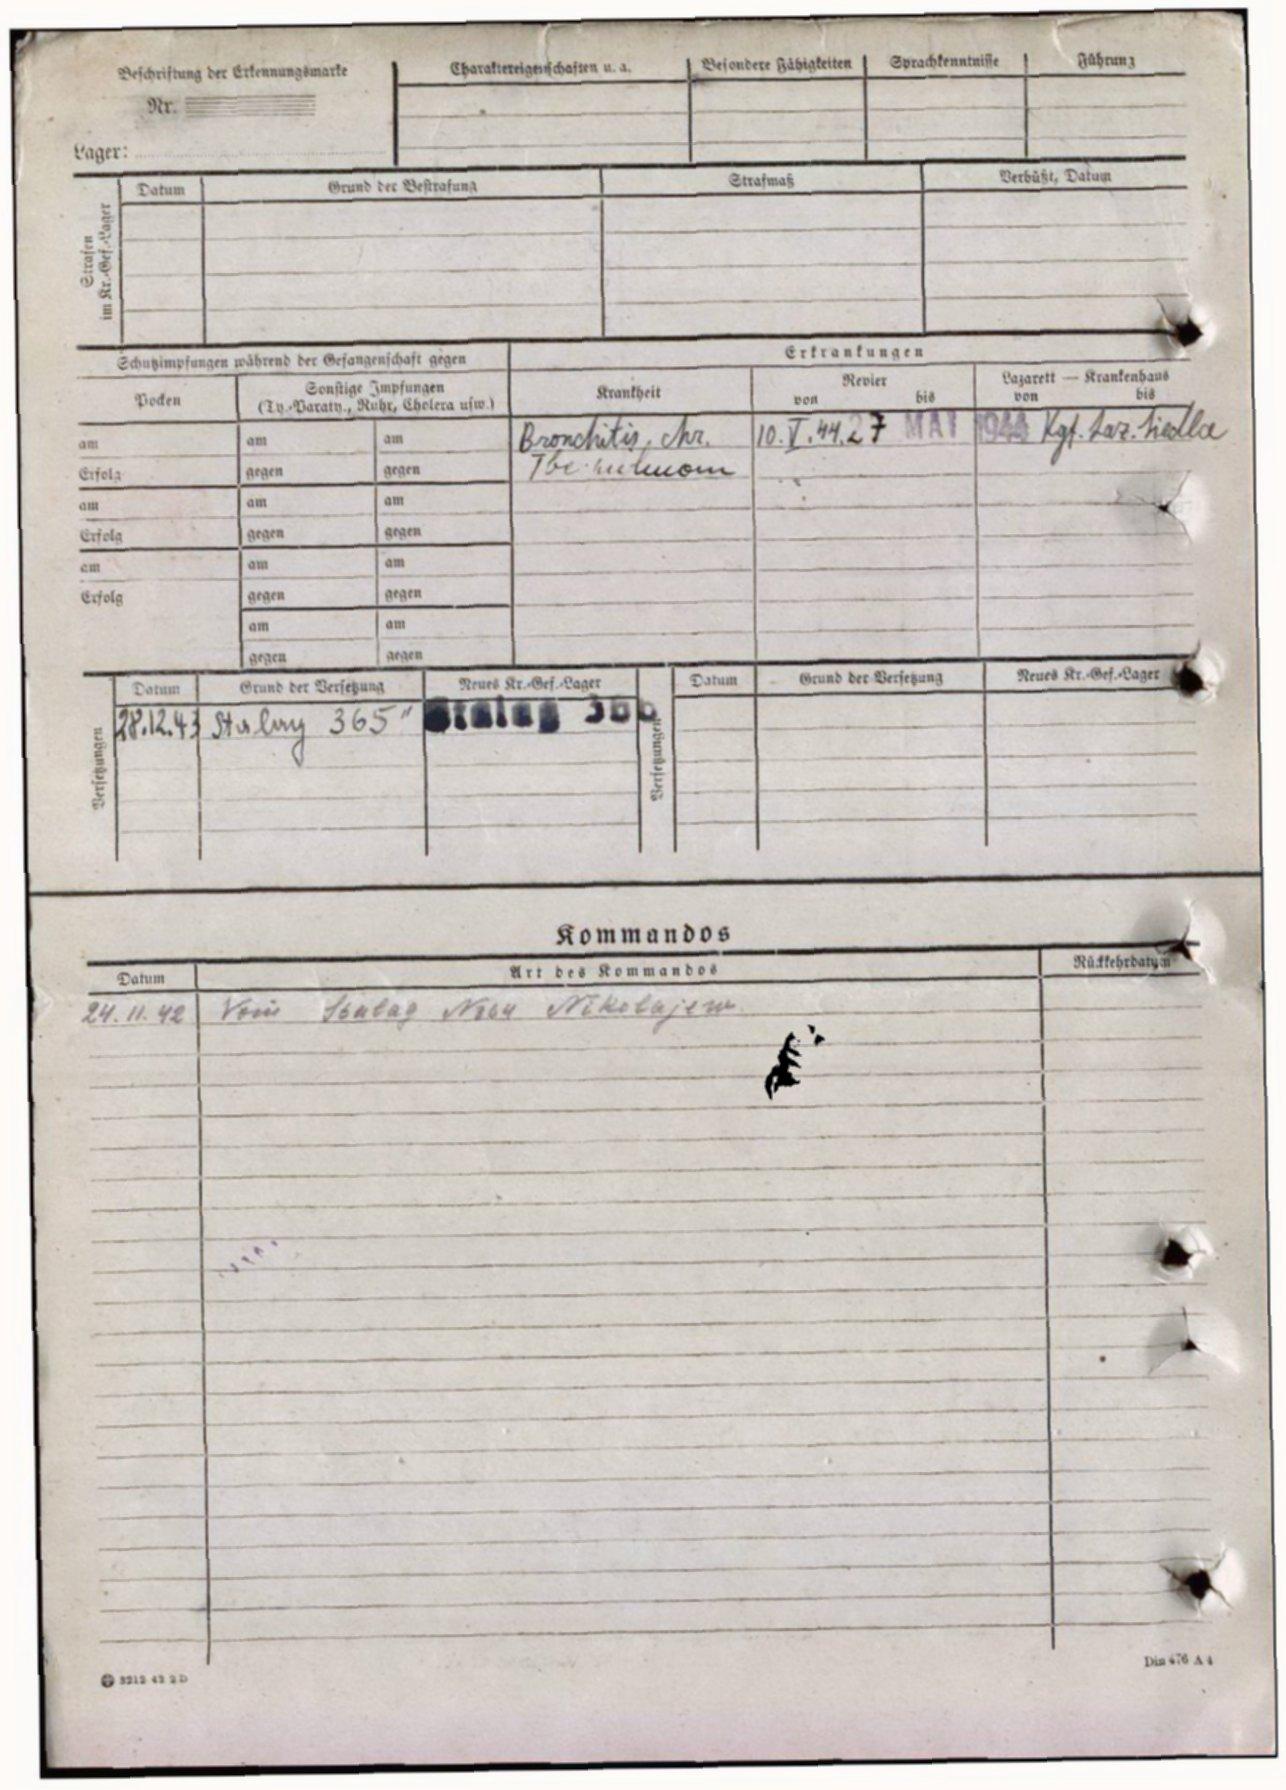 Beschriftung der Erkennungsmarke
Nr.
Lager:
Charaktereigenschaften u. a.
Besondere Fähigkeiten
Sprachkenntnisse
Führung
Strafen im Kr.-Gef.-Lager
Datum
Grund der Bestrafung
Strafmaß
Verbüßt, Datum
Schutzimpfungen während der Gefangenschaft gegen
Erkrankungen
Pocken
Sonstige Impfungen
(Ty.-Paraty., Ruhr, Cholera usw.)
Krankheit
Revier
von bis
Lazarett — Krankenhaus
von bis
am am am Bronchitis, chr. 10.V.44. 27 MAI 1944 Kgf. Laz. Siedlce
Erfolg gegen gegen Tbc. pulmom
am am am
Erfolg gegen gegen
am am am
Erfolg gegen gegen
am am
gegen gegen
Versetzungen
Datum Grund der Versetzung Neues Kr.-Gef.-Lager
28.12.43 Stalag 365" Stalag 366
Versetzungen
Datum Grund der Versetzung Neues Kr.-Gef.-Lager
Kommandos
Datum Art des Kommandos Rückkehrdatum
24.11.42 Vom Stalag Nikolajew
3212 42 2 D
Din 476 A 4